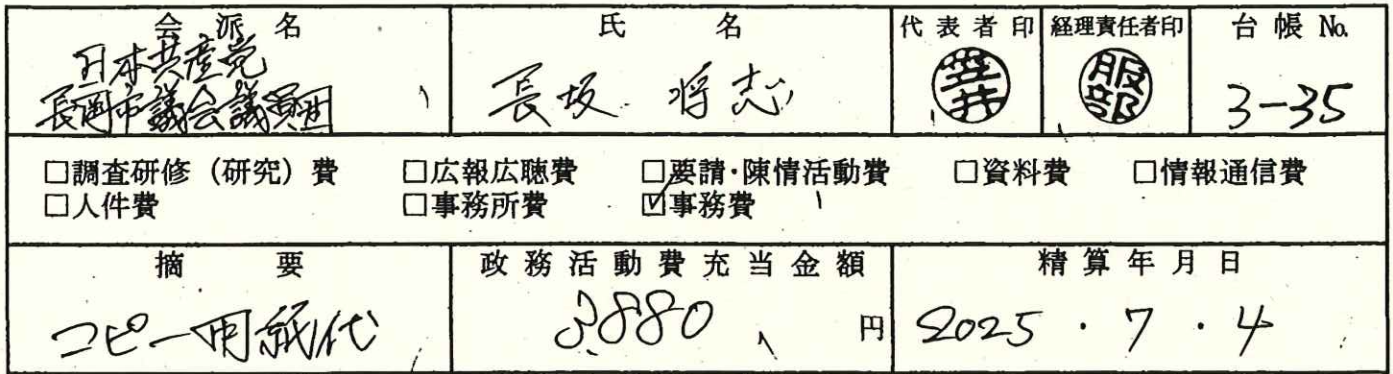 会派名 氏名 代表者印 経理責任者印 台帳No.
日本共産党
長岡市議会議員団 長坂 将志 笠井 服部 3-35
□調査研修（研究）費 □広報広聴費 □要請・陳情活動費 □資料費 □情報通信費
□人件費 □事務所費 ☑事務費
摘要 政務活動費充当金額 精算年月日
コピー用紙代 3880 円 2025・7・4